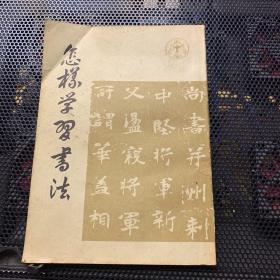 怎樣学習書法
尚書并州刺
中堅將軍新
父盪寇將軍
所謂華蓋相